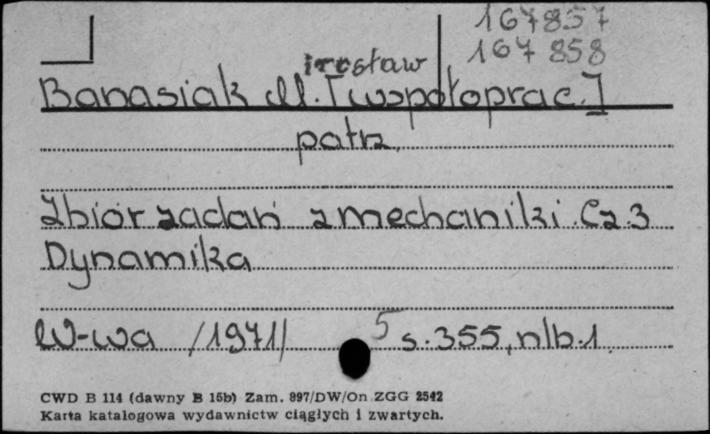 167857
167858
irosław
Banasiak M. [współoprac.]
patrz
Zbiór zadań z mechaniki. Cz. 3
Dynamika
W-wa /1971/ 5 s. 355, nlb. 1
CWD B 114 (dawny B 15b) Zam. 897/DW/On ZGG 2542
Karta katalogowa wydawnictw ciągłych i zwartych.